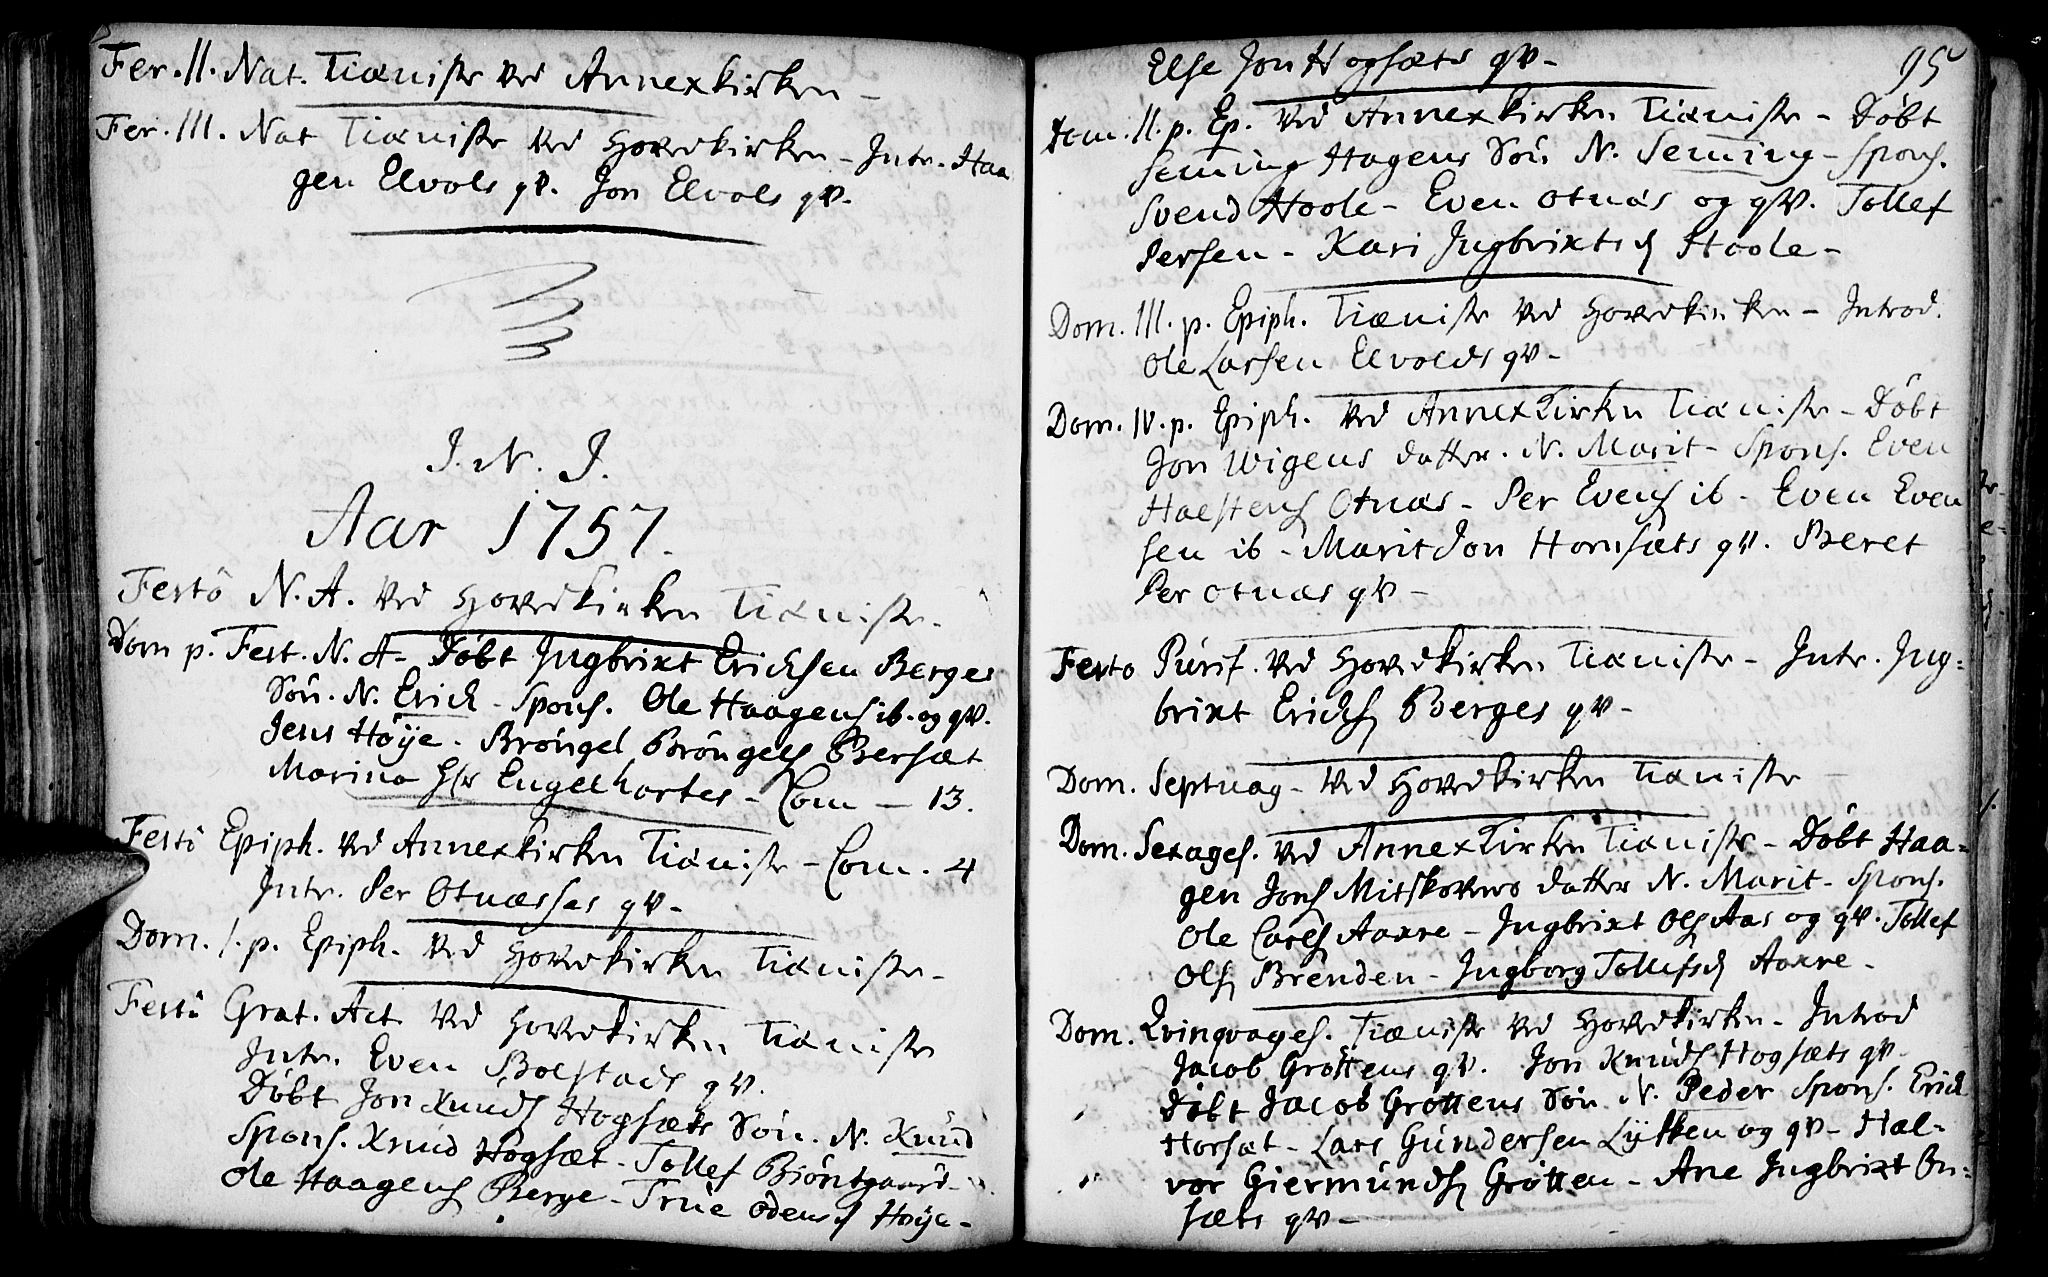 Fer. II. Nat. Tiæniste ved Annexkirken –
Fer. III. Nat Tiæniste ved Hovedkirken – Intr. Haa
gen Elvols qv. Jon Elvols qv.
J. N. J.
Aar 1757.
Festo N. A. ved Hovedkirken Tiæniste.
Dom p. Fest. N. A – Døbt Ingbrixt Ericksen Berges
Søn. N. Erick – Spons. Ole Haagens ib. og qv.
Jens Høye – Brøngel Brøngels Bersæt
Marina Engelhartes – Com – 13.
Festo Epiph. ved Annexkirken Tiæniste – Com. 4
Intr. Per Otnæsses qv –
Dom. I. p. Epiph. ved Hovedkirken Tiæniste –
Festo Grat. Act ved Hovedkirken Tiæniste
Intr. Even Bolstads qv.
Døbt Jon Knuds Hogsæts Søn. N. Knud
Spons. Knud Hogsæt – Tollef Biøntgaard –
Ole Haagens Berge – True Odens Høye –
95
Else Jon Hogsæts qv –
Dom. II. p. Ep. ved Annexkirken Tiæniste – Døbt
Seming Hagens Søn N. Seming – Spons.
Svend Hoole – Even Otnæs og qv. Tollef
Persen – Kari Ingbrixtsd Hoole –
Dom. III. p. Epiph. Tiæniste ved Hovedkirken – Introd.
Ole Larsen Elvolds qv –
Dom. IV. p. Epiph. ved Annexkirken Tiæniste – Døbt
Jon Wigens datter. N. Marit – Spons. Even
Halstens Otnæs – Per Evens ib – Even Even
sen ib – Marit Jon Hornsæts qv. Beret
Per Otnæs qv –
Festo Purif. ved Hovedkirken Tiæniste – Intr. Ing=
brixt Ericks Berges qv –
Dom. Septuag – ved Hovedkirken Tiæniste –
Dom. Sexages. ved Annexkirken Tiæniste – Døbt Haa=
gen Jons Mitskovens datter N. Marit – Spons.
Ole Carls Aaxre – Ingbrixt Ols Aas og qv. Tollef
Ols Brenden – Ingborg Tollefsd Aaxre –
Dom. Qvinqvages. Tiæniste ved Hovedkirken – Introd
Jacob Grøttens qv. Jon Knuds Hogsæts qv –
Døbt Jacob Grøttens Søn N. Peder Spons. Erick
Horsæt – Lars Gundersen Lykken og qv – Hal=
vor Giermunds Grøtten – Ane Ingbrixt On=
sæts qv –